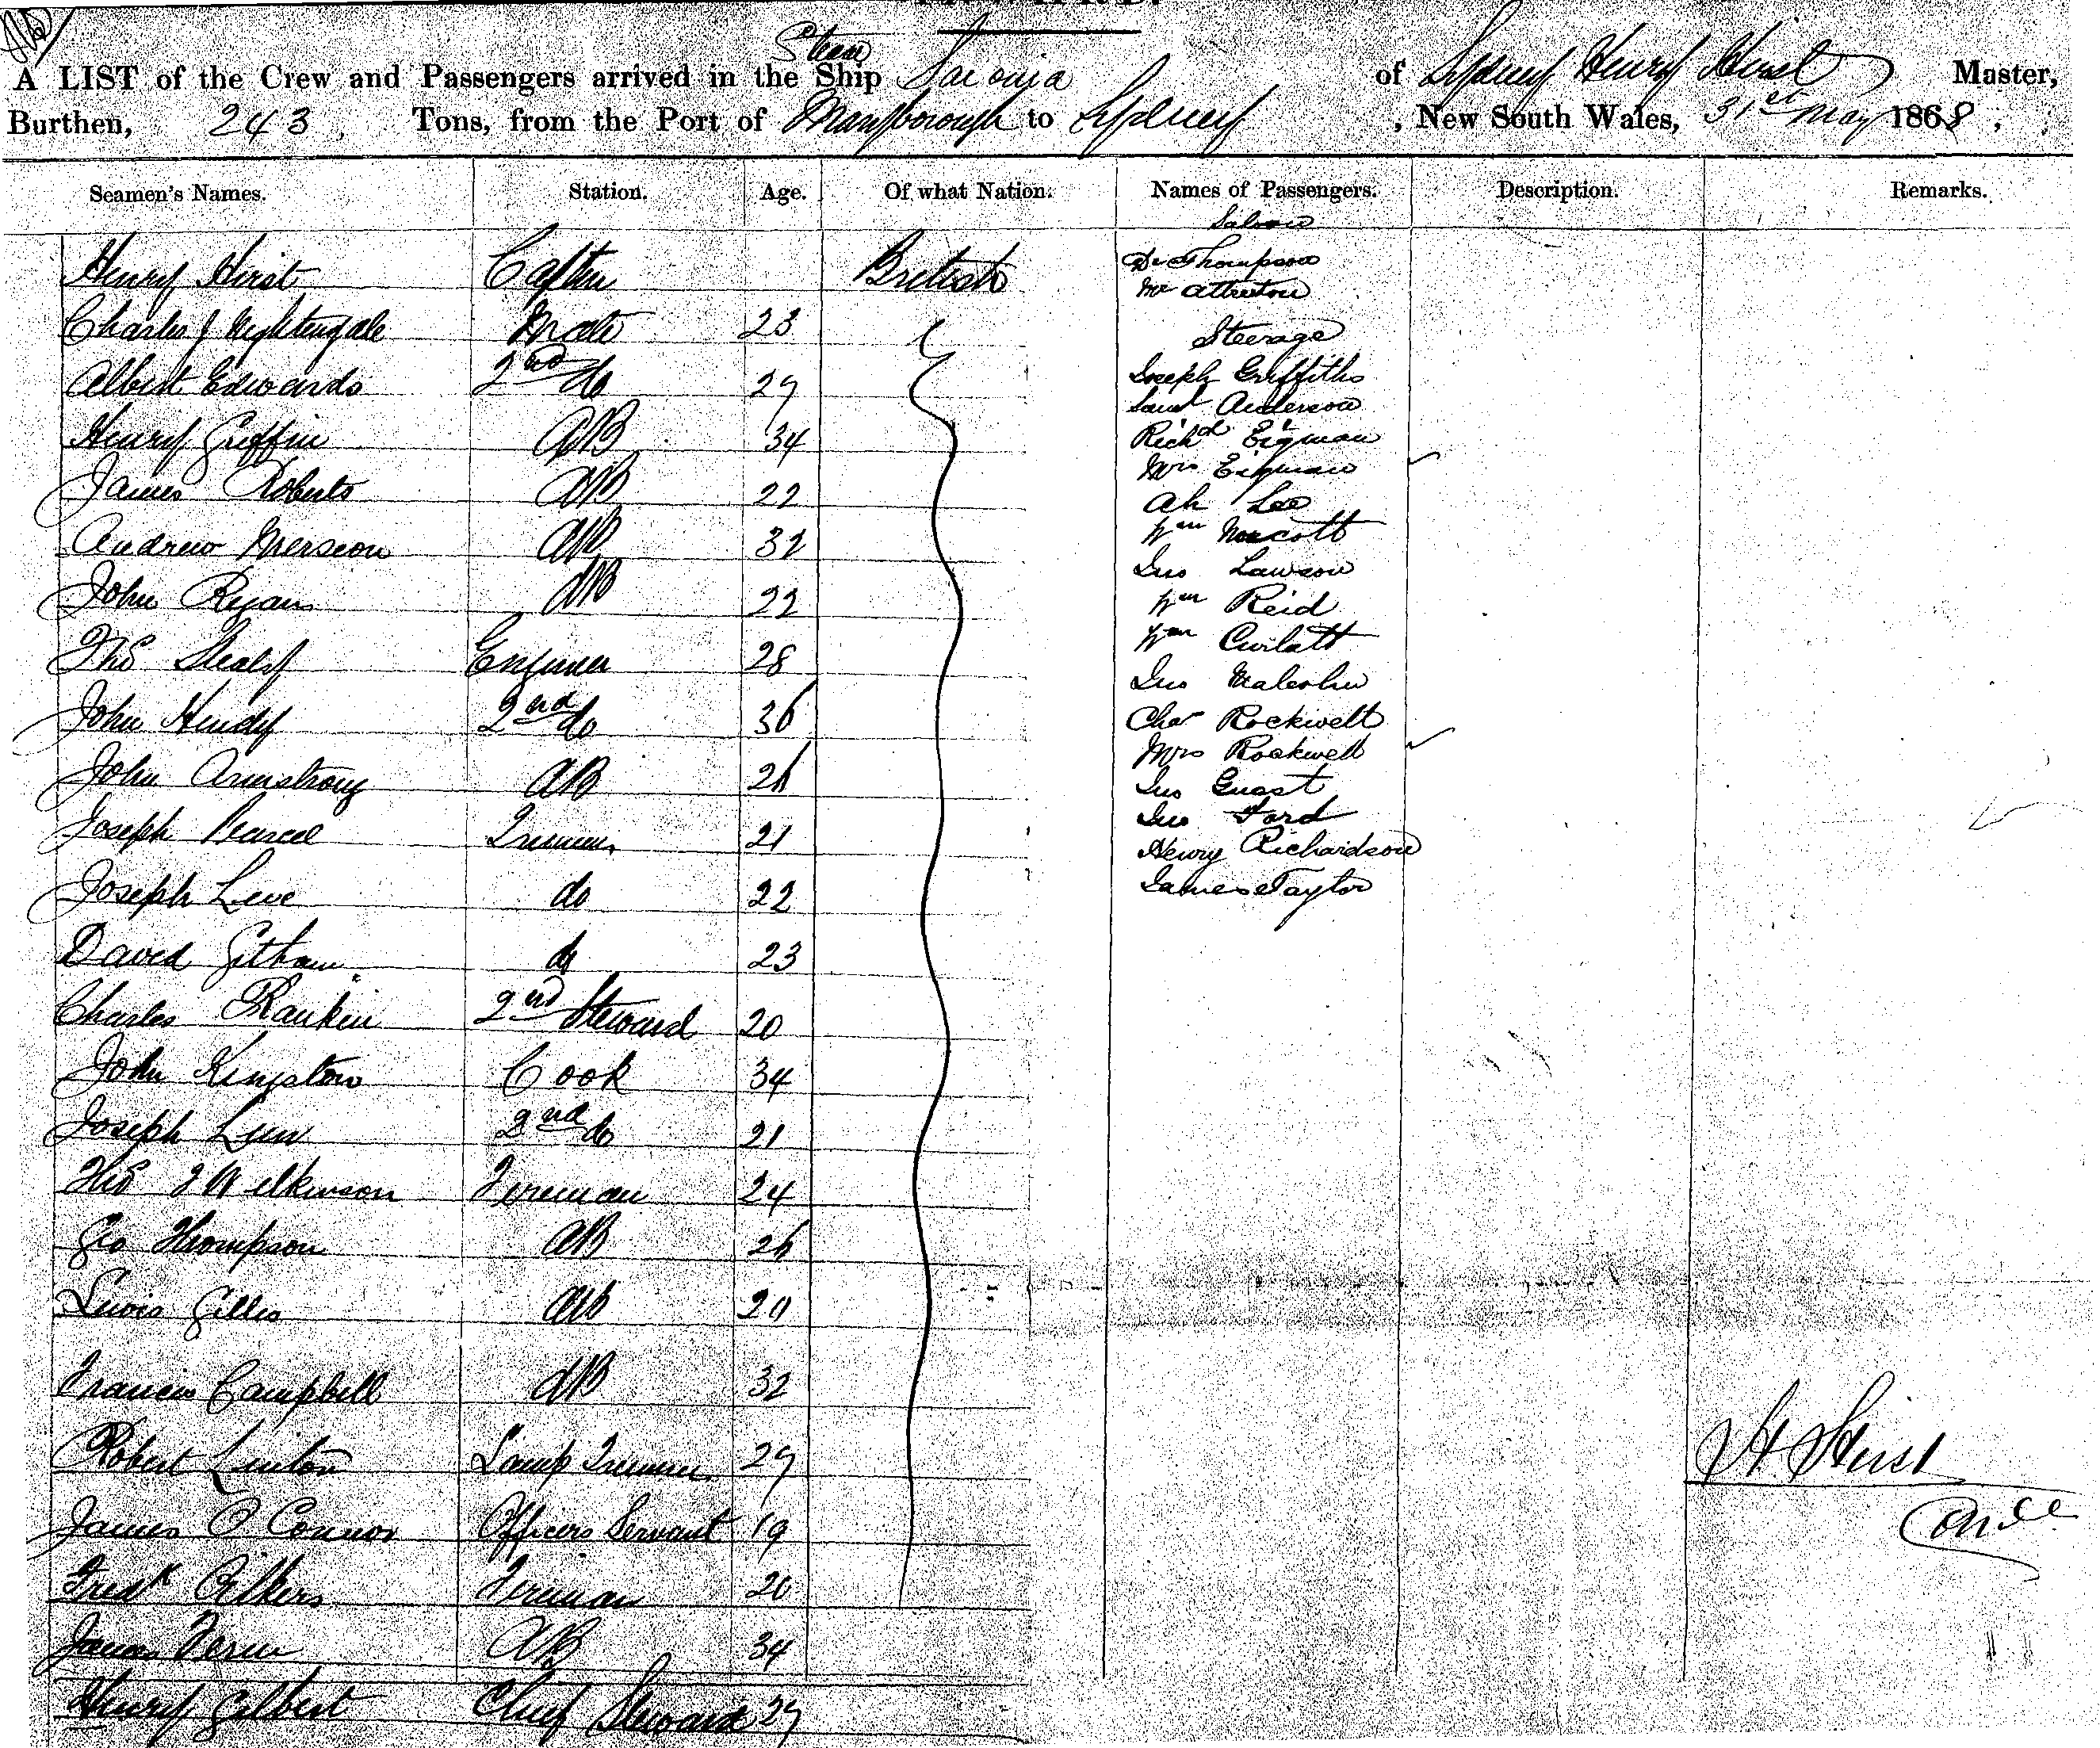 Steam
A LIST of the Crew and Passengers arrived in the Ship of Sydney Henry Hirst Master,
Burthen, 243 Tons, from the Port of Maryborough to Sydney, New South Wales, 31st May 1868,
Seamen's Names. Station. Age. Of what Nation. Names of Passengers. Description. Remarks.
Saloon
Henry Hirst British Dr Thompson
Mr Atherton
Charles J Nightingale Mate 23 Steerage
Albert Edwards 2nd do 29 Joseph Griffiths
Saml Anderson
Henry Griffin AB 34 Richd Eigman
Mrs Eigman
James Roberts AB 22 Ah Lee
Andrew AB 32 Wm
Jno Lawson
John AB 22 Wm Reid
Wm
Thos Engineer 28
Jno Malcolm
John Hendy 2nd do 36 Chas Rockwell
Mrs Rockwell
John Armstrong AB 26 Jno
Jno Ford
Joseph Pearcel Trimmer 21 Henry Richardson
Joseph do 22 James Taylor
David do 23
Charles Rankin 2nd Steward 20
John Kingston Cook 34
Joseph 2nd do 21
Thos Wilkinson Fireman 24
Geo Thompson AB 26
Lewis Gillis AB
Francis Campbell AB 32
Robert Linton Lamp Trimmer 29
H Hirst
James O Connor Officers Servant 19
Fredk Fireman
James AB 34
Henry Gilbert Chief Steward 29